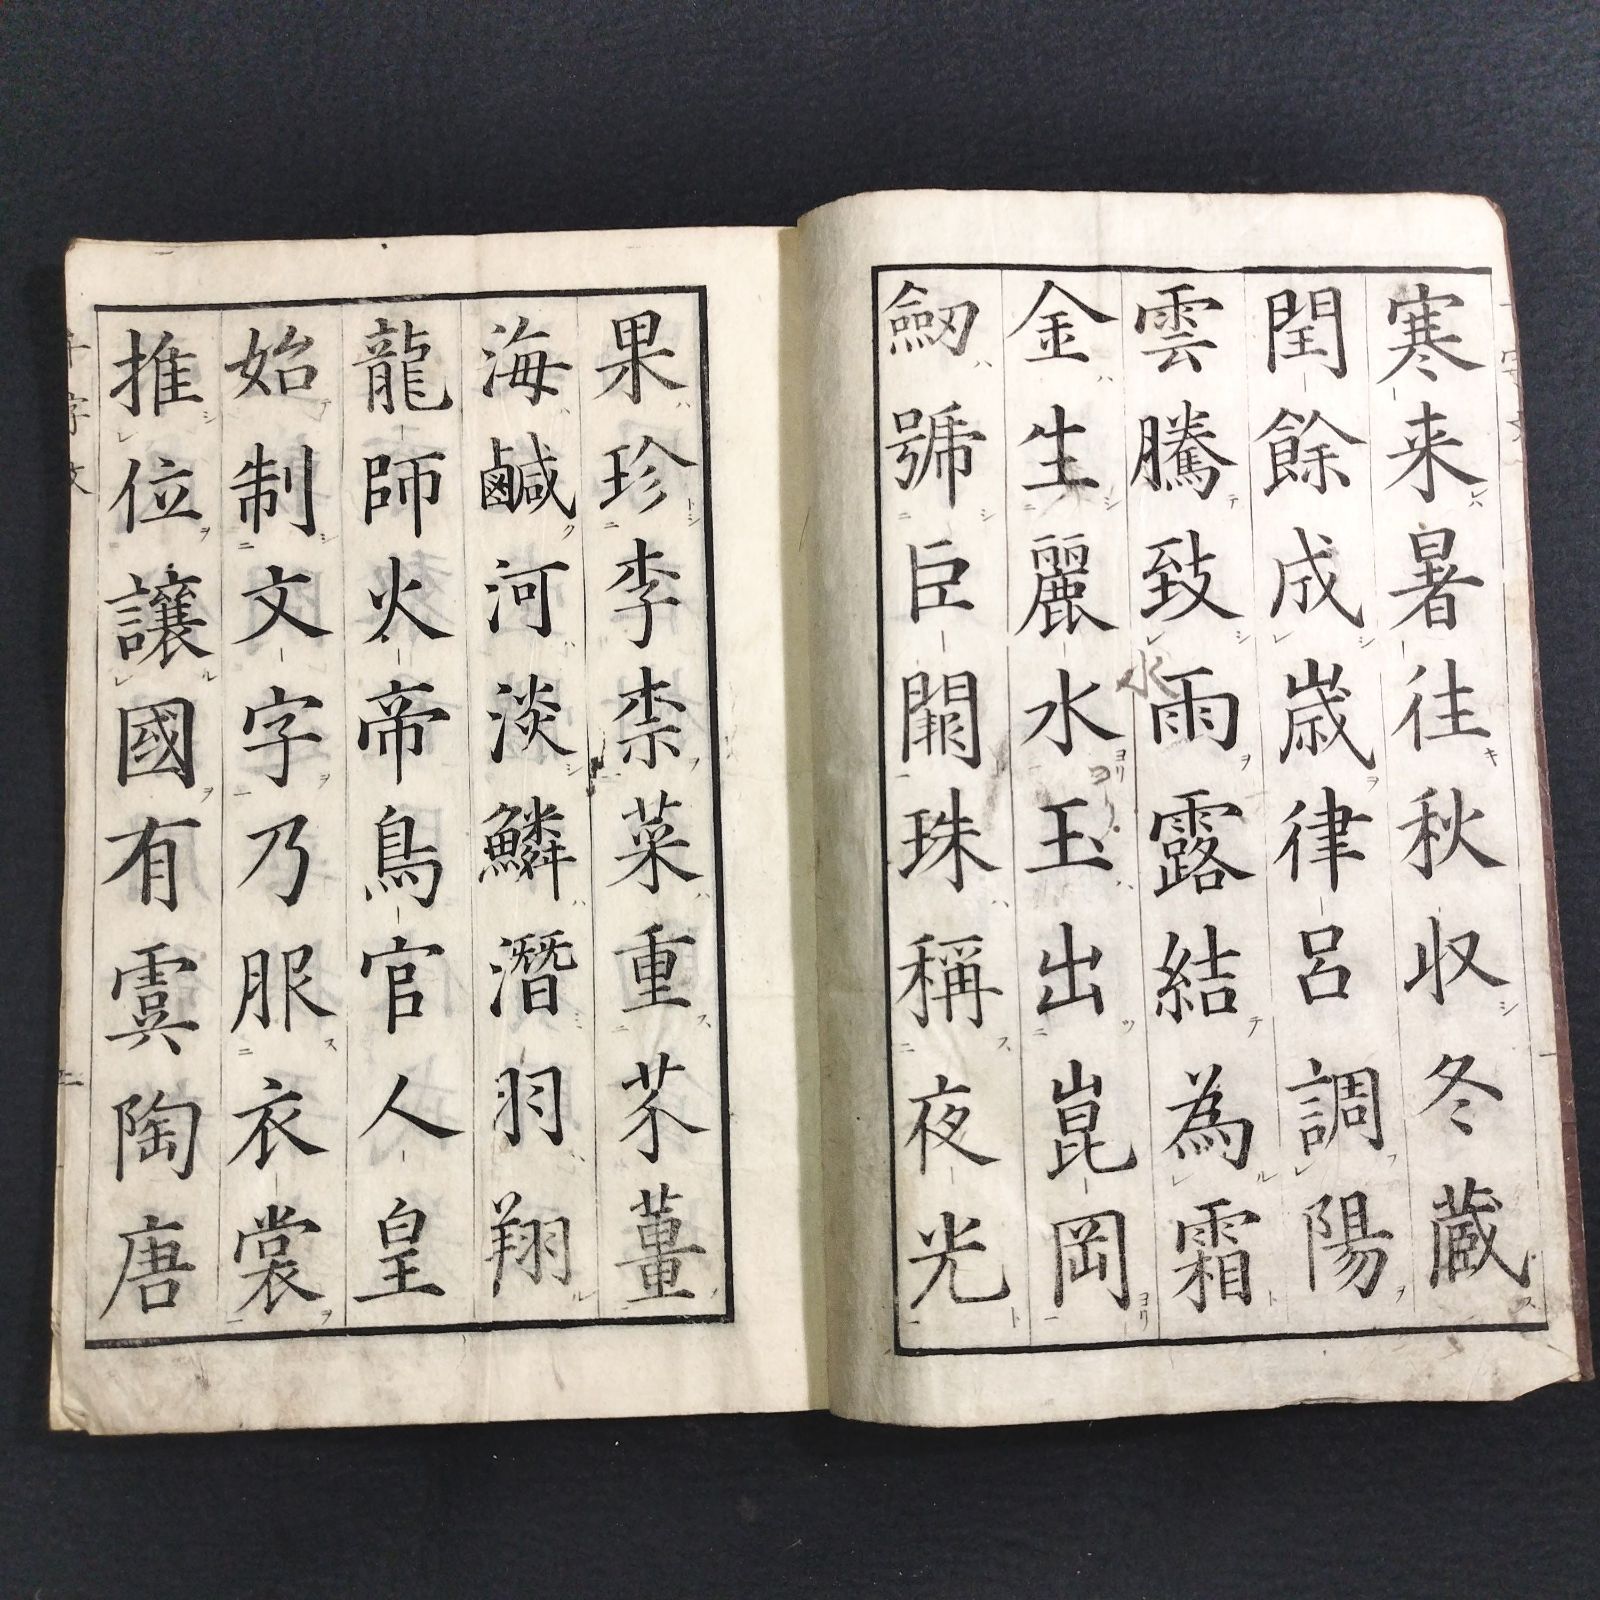 寒来暑往秋収冬蔵
閏餘成歳律呂調陽
雲騰致雨露結為霜
金生麗水玉出崑岡
劔號巨闕珠稱夜光
果珍李柰菜重芥薑
海鹹河淡鱗潛羽翔
龍師火帝鳥官人皇
始制文字乃服衣裳
推位讓國有虞陶唐